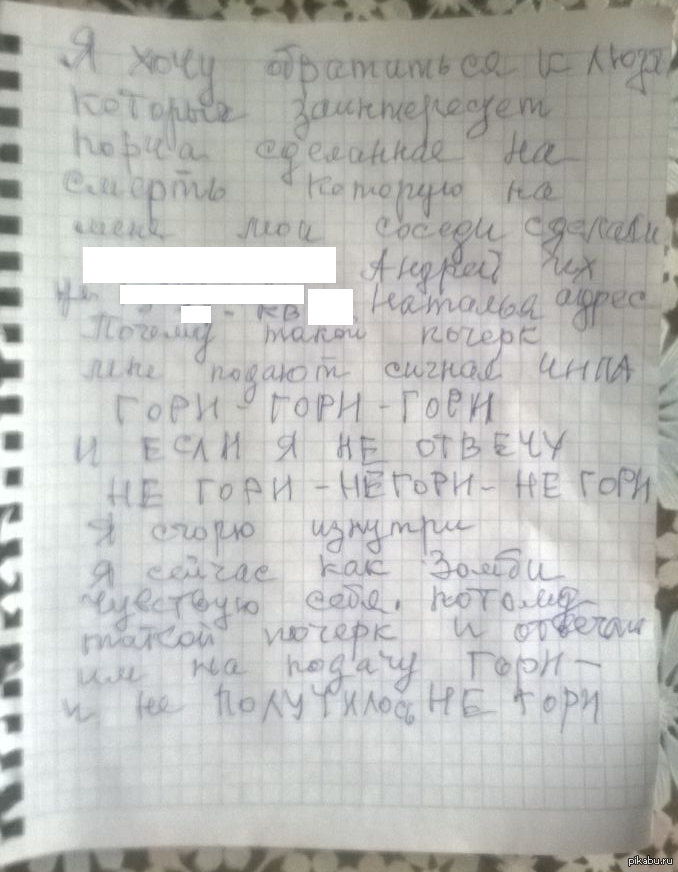 Я хочу обратиться к людя
которых заинтересует
порча сделанная на
смерть которую на
меня мои соседи сделали
Андрей их
ул. - кв Наталья адрес
Почему такой почерк
мне подают сигнал ТИПА
ГОРИ - ГОРИ - ГОРИ
И ЕСЛИ Я НЕ ОТВЕЧУ
НЕ ГОРИ - НЕ ГОРИ - НЕ ГОРИ
Я сгорю изнутри
Я сейчас как Зомби
чувствую себя. потому
такой почерк и отвечаю
им на подачу ГОРИ -
и не ПОЛУЧИЛОСЬ НЕ ГОРИ
pikabu.ru